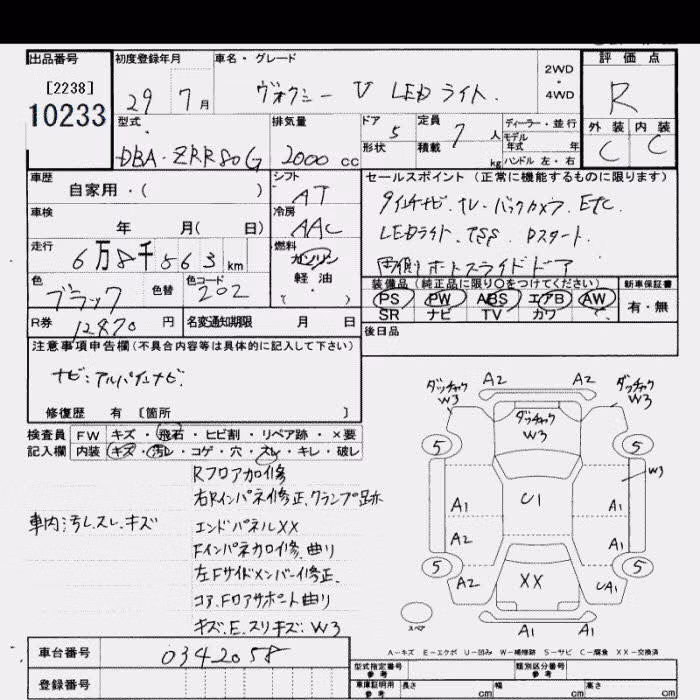 出品番号 初度登録年月 車名・グレード 評価点
[2238] 10233
29年 7月 ヴォクシー V LEDライト. 2WD・4WD R
型式 排気量 ドア 5 定員 7人 ディーラー・並行 外装 内装
DBA-ZRR80G 2000cc 形状 積載 kg モデル年式 年 ハンドル 左・右 C C
車歴 自家用・( ) シフト AT セールスポイント (正常に機能するものに限ります)
車検 年 月( 日) 冷房 AAC ナビ.TV.バックカメラ.ETC.
走行 6万8千563km 燃料 ガソリン LEDライト.TSS.Pスタート.
軽油 ( ) 両側オートスライドドア
色 ブラック 色替 色コード 202 装備品 (純正品に限り○をつけてください) 新車保証書
PS PW ABS エアB AW 有・無
SR ナビ TV カワ
R券 12870円 名変通知期限 月 日 後日品
注意事項申告欄(不具合内容等は具体的に記入して下さい)
ナビ:アルパインナビ.
修復歴 有 〔箇所 〕
検査員 FW キズ・飛石・ヒビ割・リペア跡・×要
記入欄 内装 キズ・汚レ・コゲ・穴・スレ・キレ・破レ
Rフロアカロ修
右Rインパネ修正.クランプ跡
車内汚レ.スレ.キズ
エンドパネルXX
Fインパネカロ修.曲り
左Fサイドメンバー修正.
コア.Fロアサポート曲り
キズ.E.スリキズ:W3
ダッチャク W3 A2 A2 ダッチャク W3
ダッチャク W3
5 5
W3
A1 U1 A1
A2 A1
5 5
A2 XX UA1
スペア A1 A1
A-キズ E-エクボ U-凹み W-補修跡 S-サビ C-腐食 XX-交換済
車台番号 0342058
型式指定番号 参考 類別区分番号 参考
登録番号
車庫証明用 参考 長さ cm 幅 cm 高さ cm